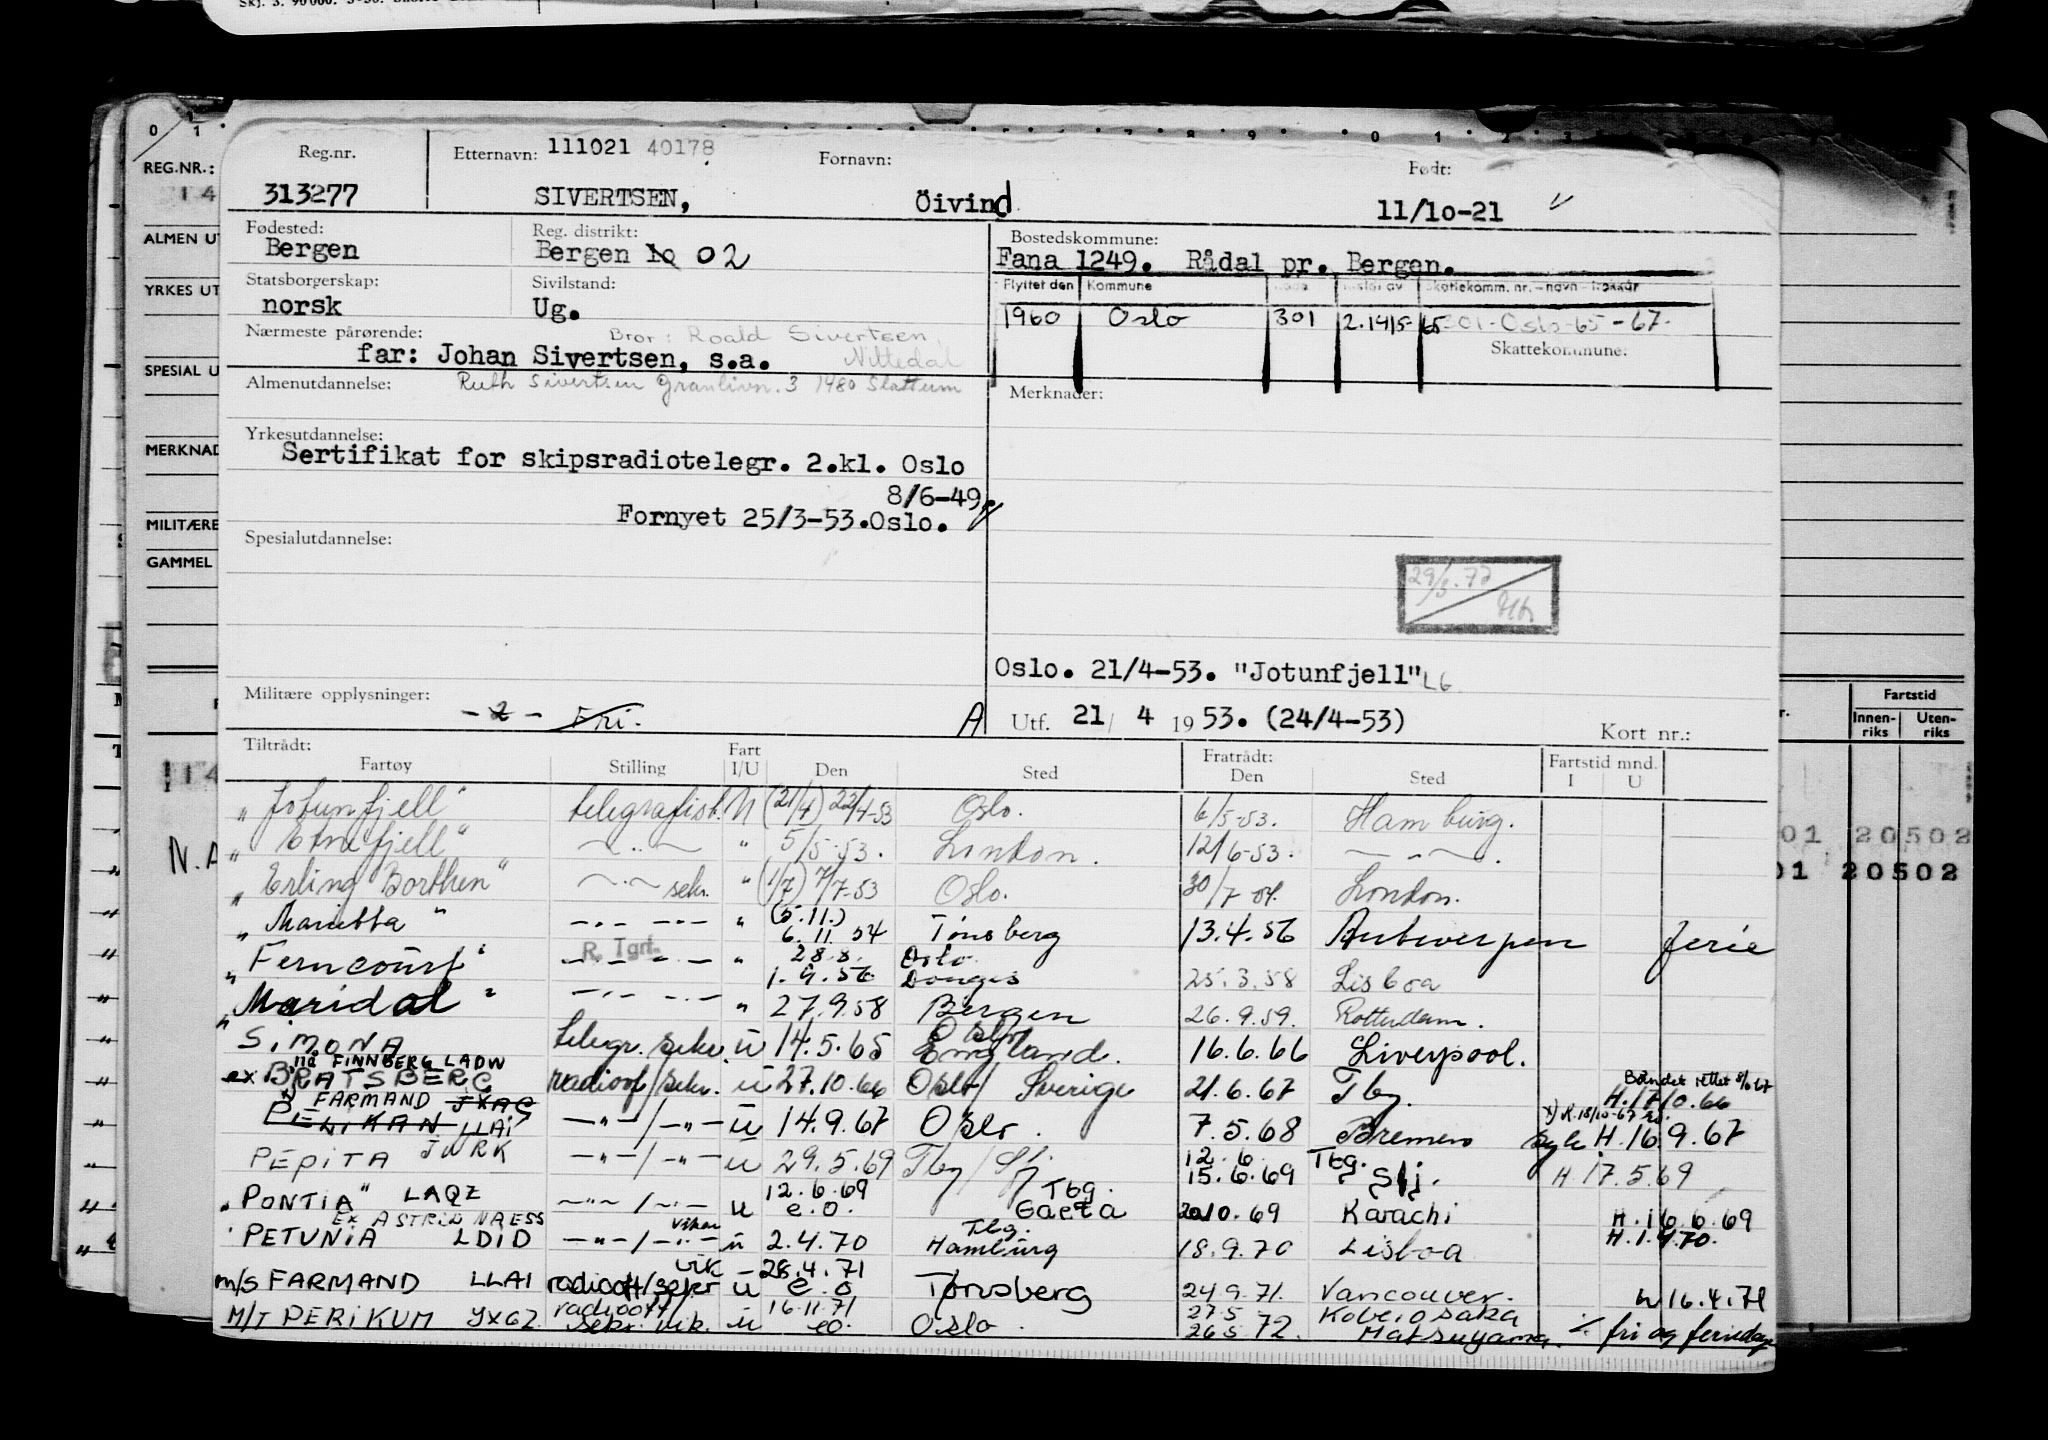 REG.NR.:
ALMEN UT
YRKES UT
SPESIAL U
MERKNAD
MILITÆRE
GAMMEL
Reg.nr. Etternavn: 111021 40178 Fornavn: Født:
313277 SIVERTSEN, Öivind 11/10-21
Fødested: Reg. distrikt: Bostedskommune:
Bergen Bergen 02 Fana 1249. Rådal pr. Bergen.
Statsborgerskap: Sivilstand: Flyttet den Kommune
norsk Ug. 1960 Oslo 301 2.1415- 65 301-Oslo-65-67-
Nærmeste pårørende: Bror: Roald Sivertsen, Skattekommune:
far: Johan Sivertsen, s.a. Nittedal
Almenutdannelse: Ruth Sivertsen Granlivn. 3 1480 Slattum Merknader:
Yrkesutdannelse:
Sertifikat for skipsradiotelegr. 2.kl. Oslo
8/6-49,
Fornyet 25/3-53.Oslo.
Spesialutdannelse:
29/3.72
Oslo. 21/4-53. "Jotunfjell" LG
Militære opplysninger: -2- Fri. A Utf. 21/ 4 1953. (24/4-53) Kort nr.:
Tiltrådt: Fart Fratrådt: Fartstid mnd.
Fartøy Stilling I/U Den Sted Den Sted I U
Fartstid
Innen-riks Uten-riks
"Jotunfjell" telegrafist. U (21/4) 22/4-53 Oslo. 6/5-53. Hamburg.
"Etnefjell" ~ .. ~ " 5/5-53. London. 12/6-53. ~ " ~.
"Erling Borthen" ~ . ~ sekr. " (1/7) 7/7-53 Oslo. 30/7-54. London.
"Marietta" -.- -.- " (5.11.) 6.11.54 Tønsberg 13.4.56 Antwerpen ferie
"Ferncourt" R. Tgrf. -.- " 28.8. 1.9.56 Oslo Donges 25.3.58 Lisboa
"Maridal" -.- -.- " 27.9.58 Bergen 26.9.59. Rotterdam.
SIMONA telegr./sekr. u 14.5.65 Oslo/ England. 16.6.66 Liverpool.
nå FINNBERG LADW
ex BRATSBERG radioof/sekr. u 27.10.66 Oslo/ Sverige 21.6.67 Tbg. H.17.10.66
x) FARMAND JXAG
PELIKAN LLAI -"-/-"- u 14.9.67 Oslo. 7.5.68 Bremen syk H.16.9.67
PEPITA JWRK -"-/-"- u 29.5.69 Tbg/Sj. 12.6. 15.6.69 Tbg. Sj. H.17.5.69
"PONTIA" LAQZ -"-/-"- u 12.6.69 e.o. Tbg. Gaeta 20.10.69 Karachi H.16.6.69
EX ASTRID NAESS
PETUNIA LDID -"-/-"- vikar u 2.4.70 Tbg. Hamburg 18.9.70 Lisboa H.1.4.70.
m/s FARMAND LLAI radiooff/sekr vik u 28.4.71 e.o Tønsberg 24.9.71. Vancouver. u 16.4.71
M/T PERIKUM JXGZ radiooff/ sekr. vik. u 16.11.71 eo. Oslo. 27.5 26.5 72. Kobe/Osaka Matsuyama. ./. fri og feriedage
01 20502
01 20502
N.A